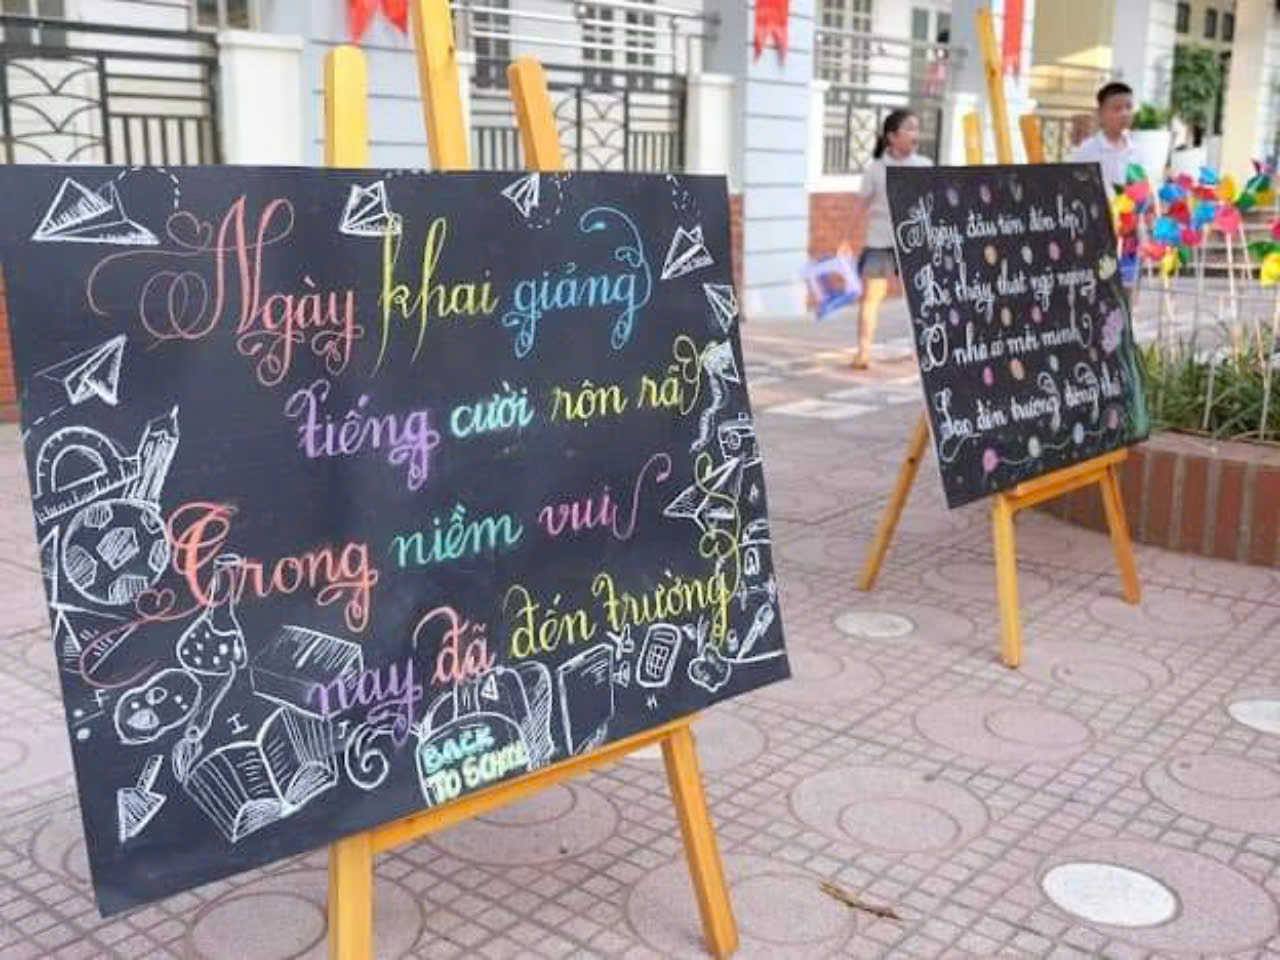 Ngày khai giảng
tiếng cười rộn rã
Trong niềm vui
nay đã đến trường
BACK
TO SCHOOL
Ngày đầu tiên đến lớp
Bé thấy thật ngỡ ngàng
Ở nhà có mỗi mình
Sao đến trường đông thế